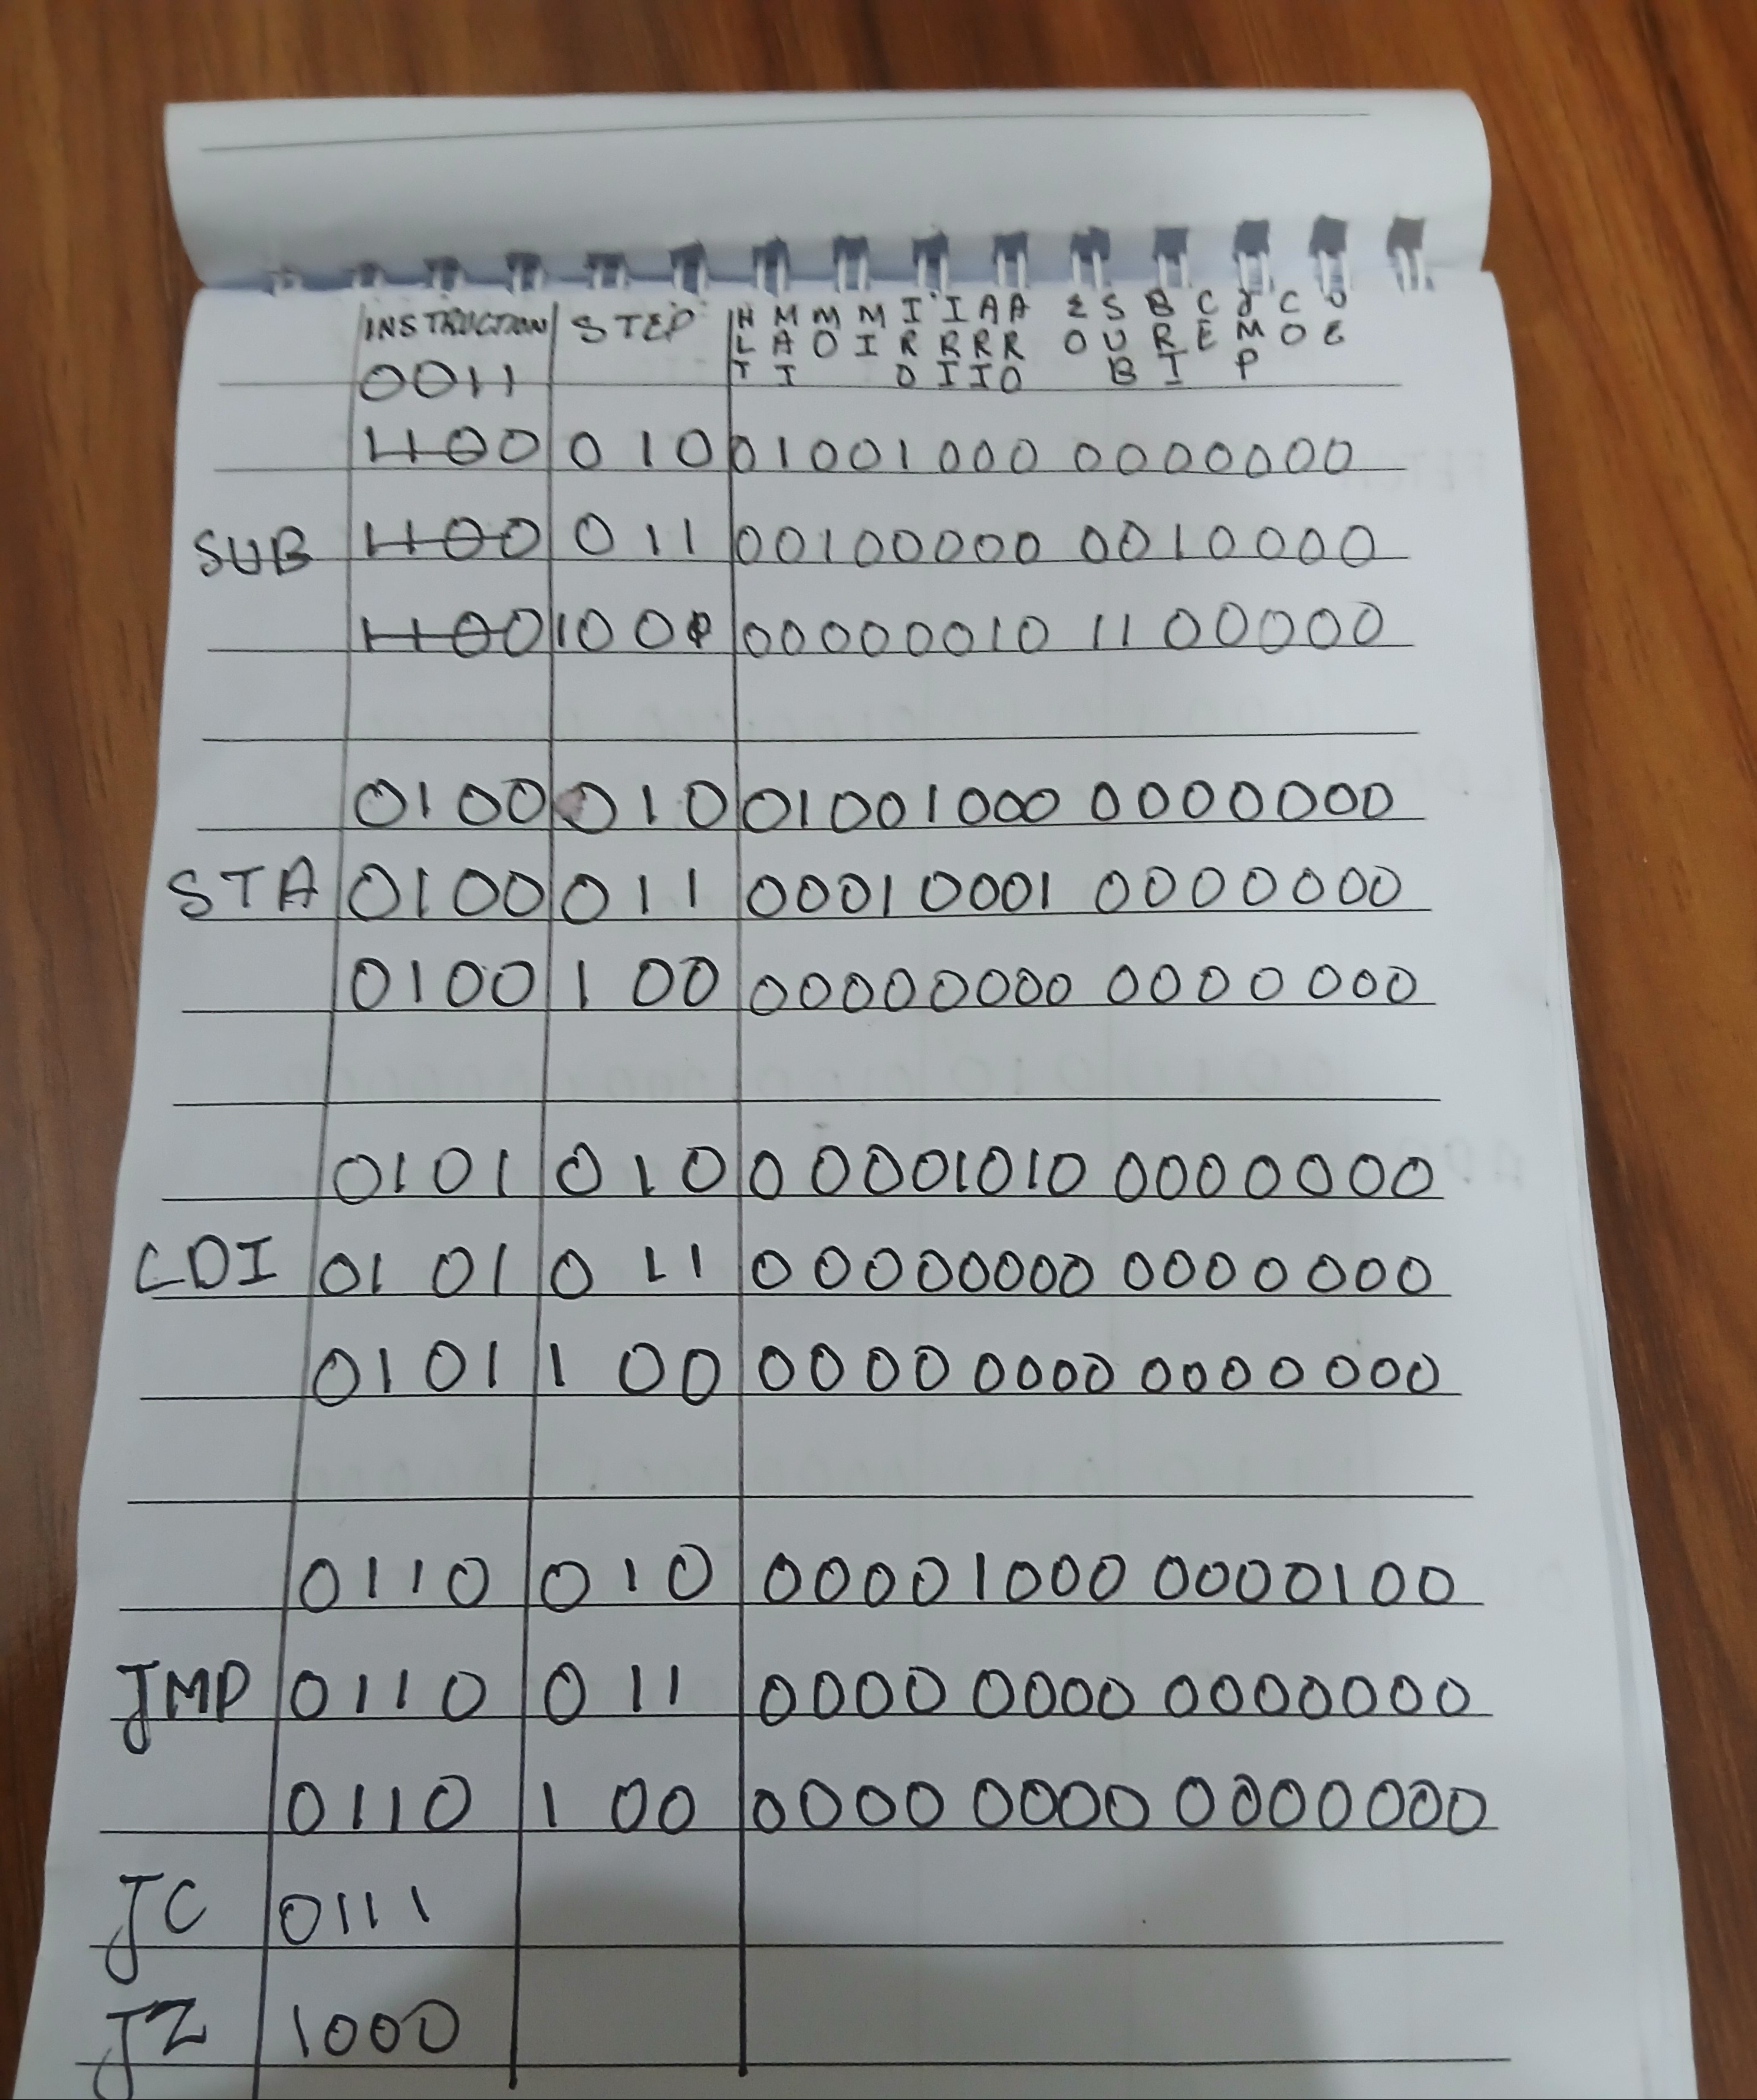 INSTRUCTION STEP HLT MAI MO MI IRO IRI ARI ARO ΣO SUB BRI CE JMP CO OE
0011
1100 010 01001000 0000000
SUB 1100 011 00100000 0010000
1100 100 00000010 1100000
0100 010 01001000 0000000
STA 0100 011 00010001 0000000
0100 100 00000000 0000000
0101 010 00001010 0000000
LDI 0101 011 00000000 0000000
0101 100 00000000 0000000
0110 010 00001000 0000100
JMP 0110 011 00000000 0000000
0110 100 00000000 0000000
JC 0111
JZ 1000